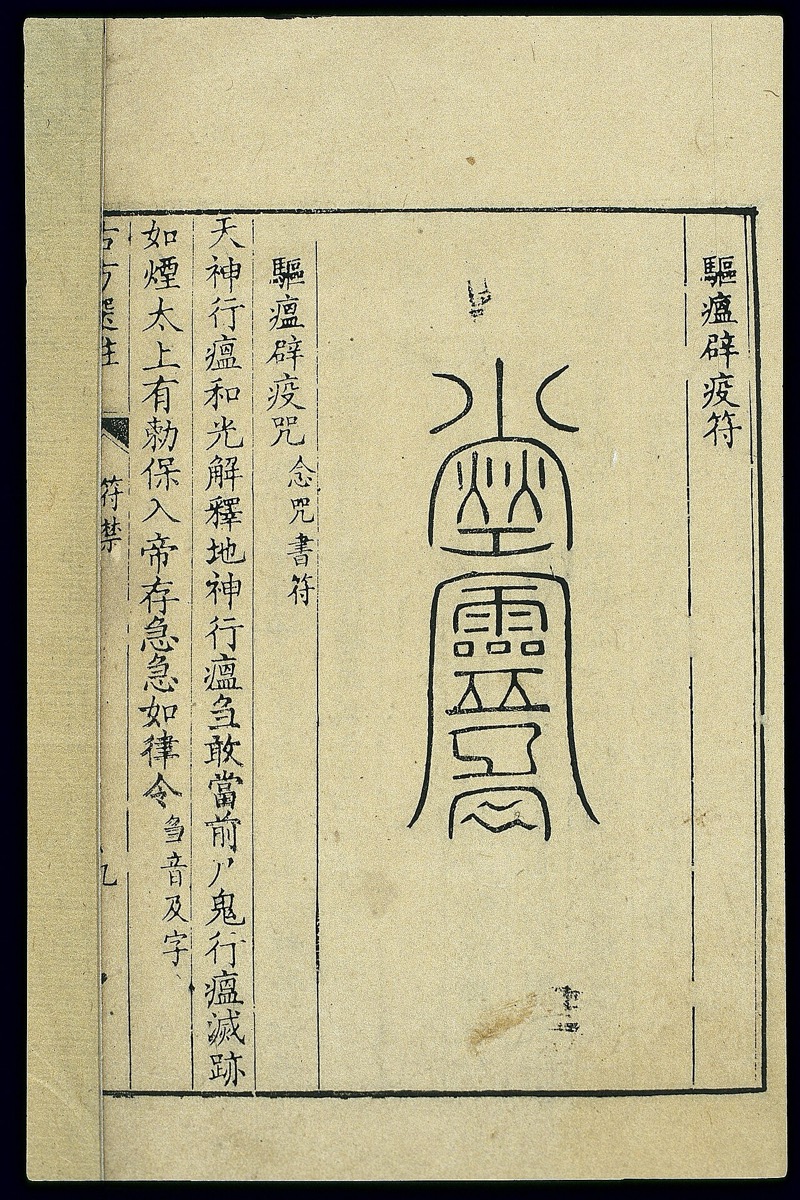 驅瘟辟疫符
驅瘟辟疫咒 念咒書符
天神行瘟和光解釋地神行瘟刍敢當前尸鬼行瘟滅跡
如煙太上有勅保入帝存急急如律令 刍音及字
符禁